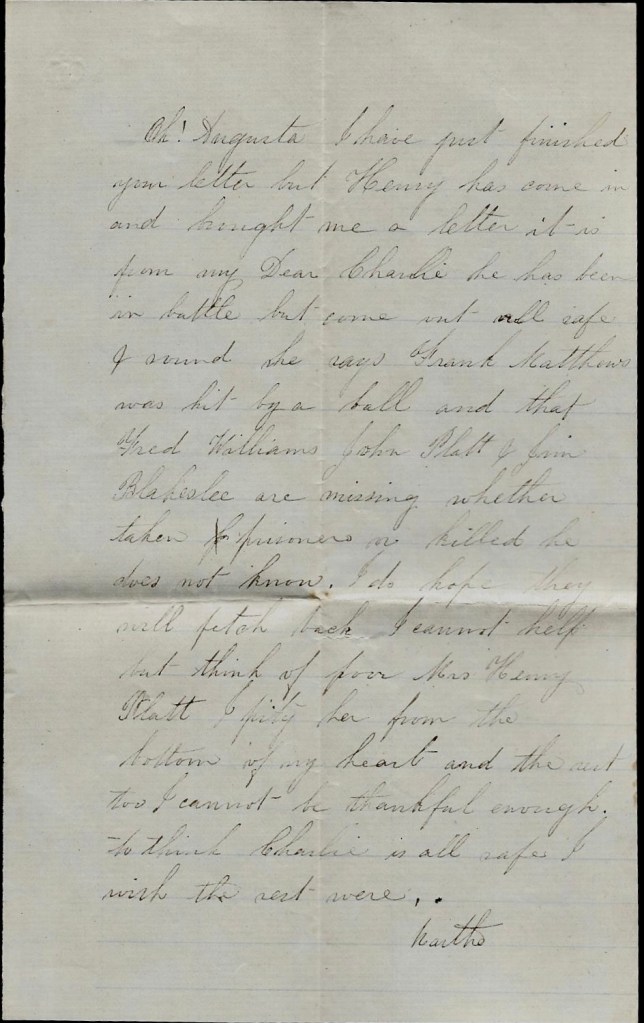 Oh! Augusta I have just finished
your letter but Henry has come in
and brought me a letter it is
from my Dear Charlie he has been
in battle but come out all safe
& sound he says Frank Matthews
was hit by a ball and that
Fred Williams John Platt & Jim
Blakeslee are missing whether
taken prisoners or killed he
does not know. I do hope they
will fetch back I cannot help
but think of poor Mrs Henry
Platt I pity her from the
bottom of my heart and the rest
too I cannot be thankful enough.
to think Charlie is all safe I
wish the rest were..